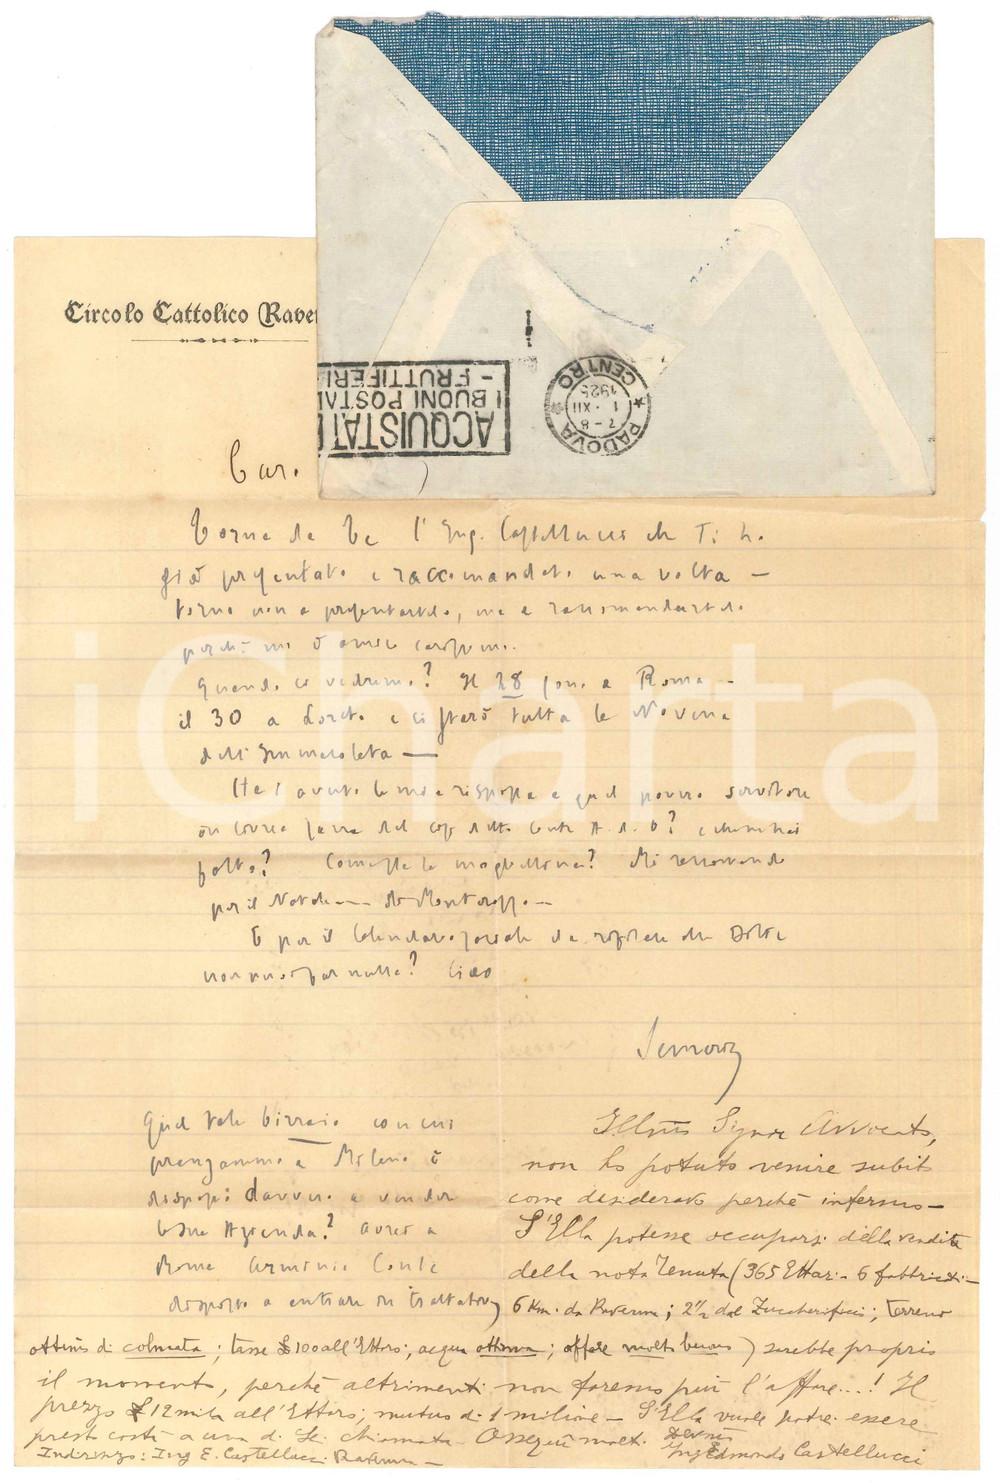 Circolo Cattolico Raven
ACQUISTAT
I BUONI POSTAL
- FRUTTIFERI
PADOVA
CENTRO
7-8
1 · XII
1925
iCharta
Car.
Torna da Te l'Ing. Castellucci che Ti ho
già presentato e raccomandato una volta —
torno non a presentartelo, ma a raccomandartelo
perché mi è amico carissimo.
Quando ci vedremo? Il 28 sono a Roma —
il 30 a Loreto e ci sterò tutta la Novena
dell'Immacolata —
Hai avuto la mia risposta
fatto? Come sta la mogliettina? Mi raccomando
per il Natale
E per il
non puoi far nulla? Ciao
Quel tale birraio con cui
pranzammo a Milano è
disposto davvero a vender
la sua Azienda? avrei a
Roma Armonio Conti
disposto a entrare in trattative
Illmo Signor Avvocato,
non ho potuto venire subito
come desideravo perché infermo —
S'Ella potesse occuparsi della vendita
della nota Tenuta (365 Ettari - 6 fabbricati -
6 Km. da Ravenna; 2½ dal Zuccherificio; terreno
ottimo di colmata; tasse £ 100 all'Ettaro; acqua ottima; affare molto buono) sarebbe proprio
il momento, perché altrimenti non faremo più l'affare...! Il
prezzo £ 12 mila all'Ettaro; mutuo di 1 milione — S'Ella vuole potrei essere
presto costà a una di Lei chiamata - Ossequi molti. Devmo
Indirizzo: Ing E. Castellucci Ravenna — Ing Edmondo Castellucci